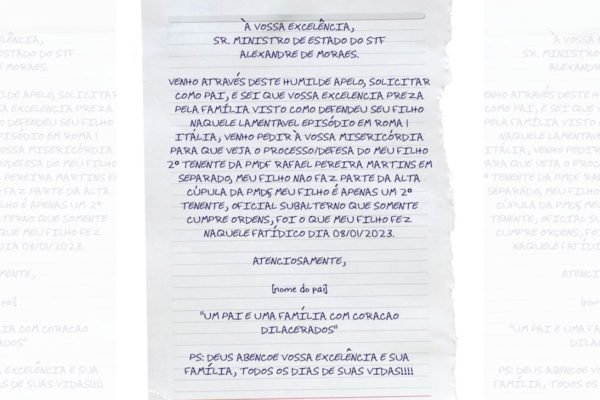 À VOSSA EXCELÊNCIA,
SR. MINISTRO DE ESTADO DO STF
ALEXANDRE DE MORAES.
VENHO ATRAVÉS DESTE HUMILDE APELO, SOLICITAR
COMO PAI, E SEI QUE VOSSA EXCELENCIA PREZA
PELA FAMÍLIA VISTO COMO DEFENDEU SEU FILHO
NAQUELE LAMENTAVEL EPISÓDIO EM ROMA |
ITÁLIA, VENHO PEDIR À VOSSA MISERICÓRDIA
PARA QUE VEJA O PROCESSO/DEFESA DO MEU FILHO
2º TENENTE DA PMDF RAFAEL PEREIRA MARTINS EM
SEPARADO, MEU FILHO NAO FAZ PARTE DA ALTA
CÚPULA DA PMDF, MEU FILHO É APENAS UM 2º
TENENTE, OFICIAL SUBALTERNO QUE SOMENTE
CUMPRE ORDENS, FOI O QUE MEU FILHO FEZ
NAQUELE FATÍDICO DIA 08/01/2023.
ATENCIOSAMENTE,
[nome do pai]
"UM PAI E UMA FAMÍLIA COM CORACAO
DILACERADOS"
PS: DEUS ABENCOE VOSSA EXCELÊNCIA E SUA
FAMÍLIA, TODOS OS DIAS DE SUAS VIDAS!!!!